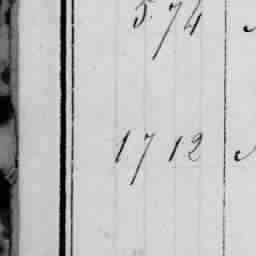 574
1712